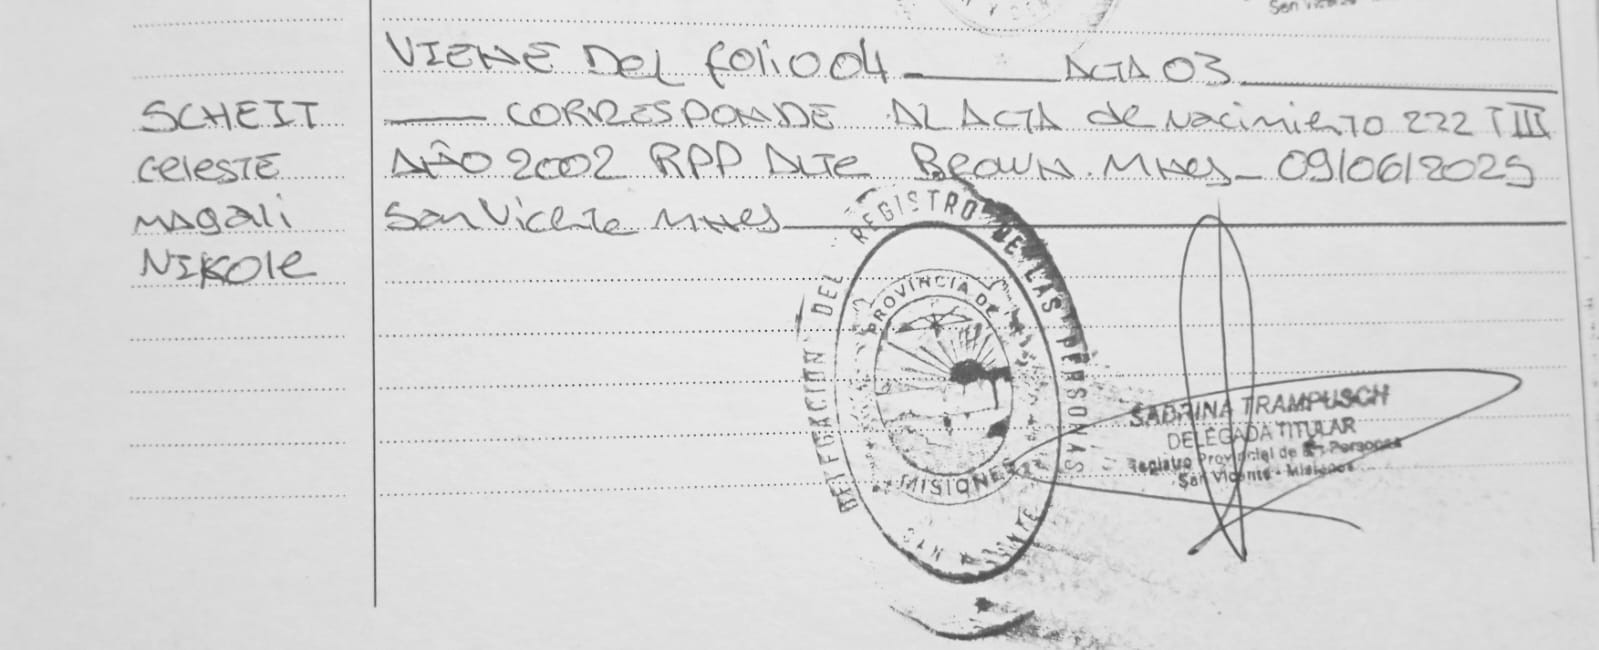 San Vicente
VIENE DEL folio 04 — ACTA 03
SCHEIT — CORRESPONDE AL ACTA de Nacimiento 222 T III
Celeste AÑO 2002 RPP Alte Brown. Mnes – 09/06/2025
Magali San Vicente Mnes
Nikole
DELEGACION DEL REGISTRO DE LAS PERSONAS
PROVINCIA DE
MISIONES
SABRINA TRAMPUSCH
DELEGADA TITULAR
Registro Provincial de las Personas
San Vicente - Misiones